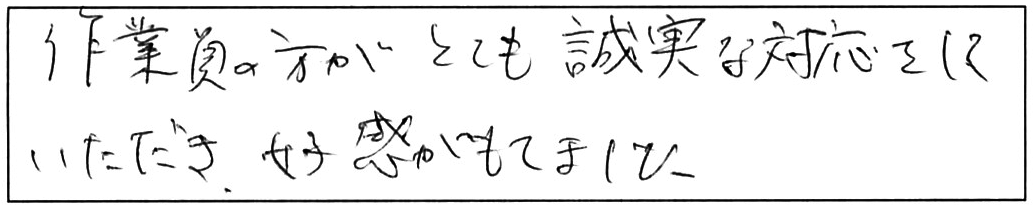 作業員の方がとても誠実な対応をして
いただき、好感がもてました